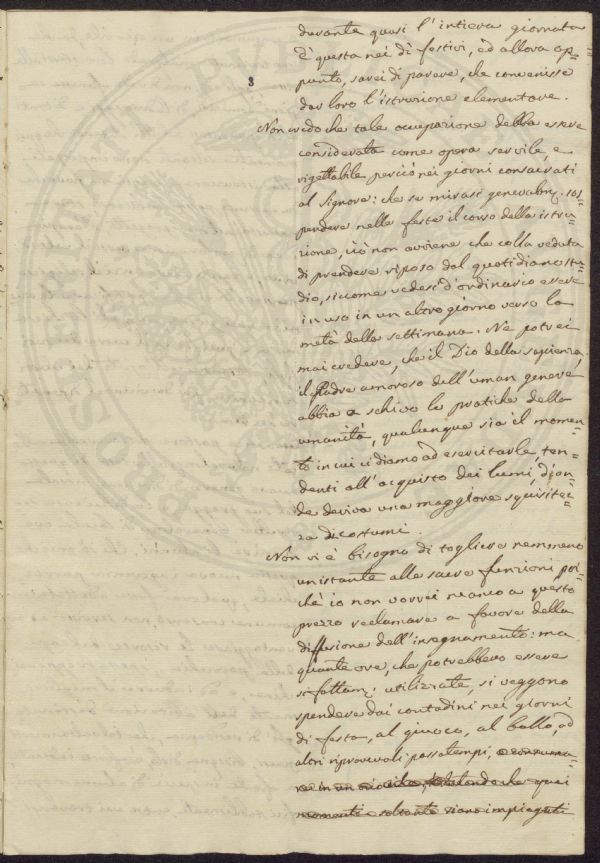 durante quasi l'intiera giornata
È questa nei dì festivi, ed allora ap=
punto, sarei di parere, che convenisse
dar loro l'istruzione elementare.
Non credo che tale occupazione debba essere
considerata come opera servile, e
rigettabile perciò nei giorni consacrati
al Signore: che se mirasi generalm. sos=
pendere nelle feste il corso della istru=
zione, ciò non avviene che colla veduta
di prendere riposo dal quotidiano stu=
dio, siccome vedesi d'ordinario essere
in uso in un altro giorno verso la
metà della settimana. Ne potrei
mai credere, che il Dio della sapienza,
il Padre amoroso dell'uman genere
abbia a schivo le pratiche della
umanità, qualunque sia il momen=
to in cui ci diamo ad esercitarle, ten=
denti all'acquisto dei lumi, d'on=
de deriva una maggiore squisitez=
za di costumi.
Non vi è bisogno di togliere nemmeno
un istante alle sacre funzioni poi=
chè io non vorrei neanco a questo
prezzo reclamare a favore della
diffusione dell'insegnamento: ma
quante ore, che potrebbero essere
sì fattam. utilizzate, si veggono
spendere dai contadini nei giorni
di festa, al giuoco, al ballo, ad
altri riprovevoli passatempi, o consuma=
re in un ozio che quei
momenti soltanto siano impiegati